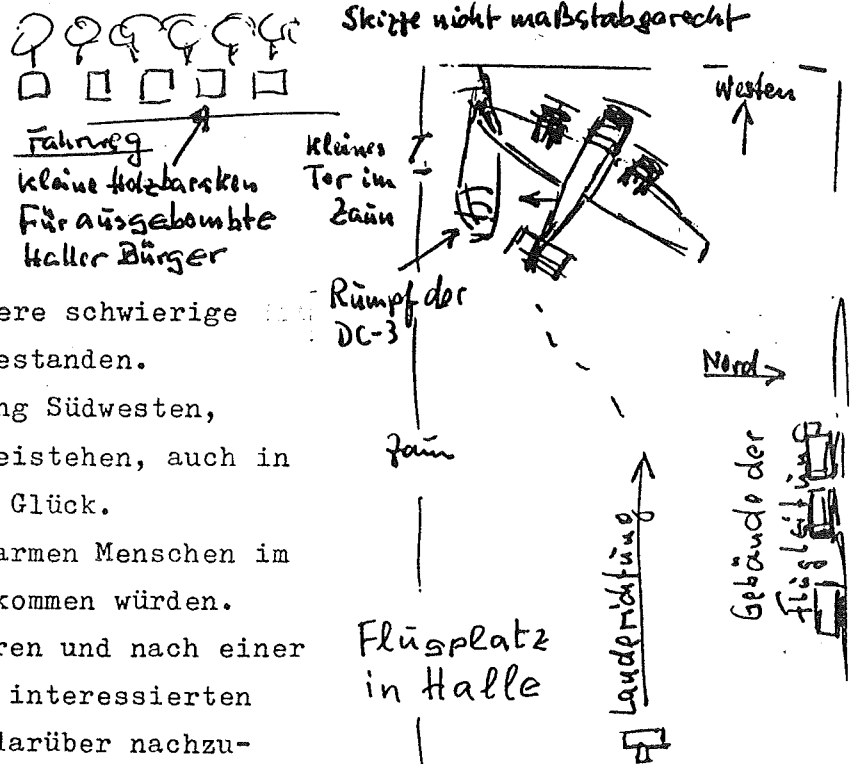 Skizze nicht maßstabgerecht
Westen
Fahrweg
kleine Holzbaracken
Für ausgebombte
Haller Bürger
kleines
Tor im
Zaun
Rumpf der
DC-3
Nord
Zaun
Gebäude der
Flugleitung
Landerichtung
Flugplatz
in Halle
ere schwierige
estanden.
ng Südwesten,
eistehen, auch in
Glück.
armen Menschen im
kommen würden.
ren und nach einer
interessierten
darüber nachzu-